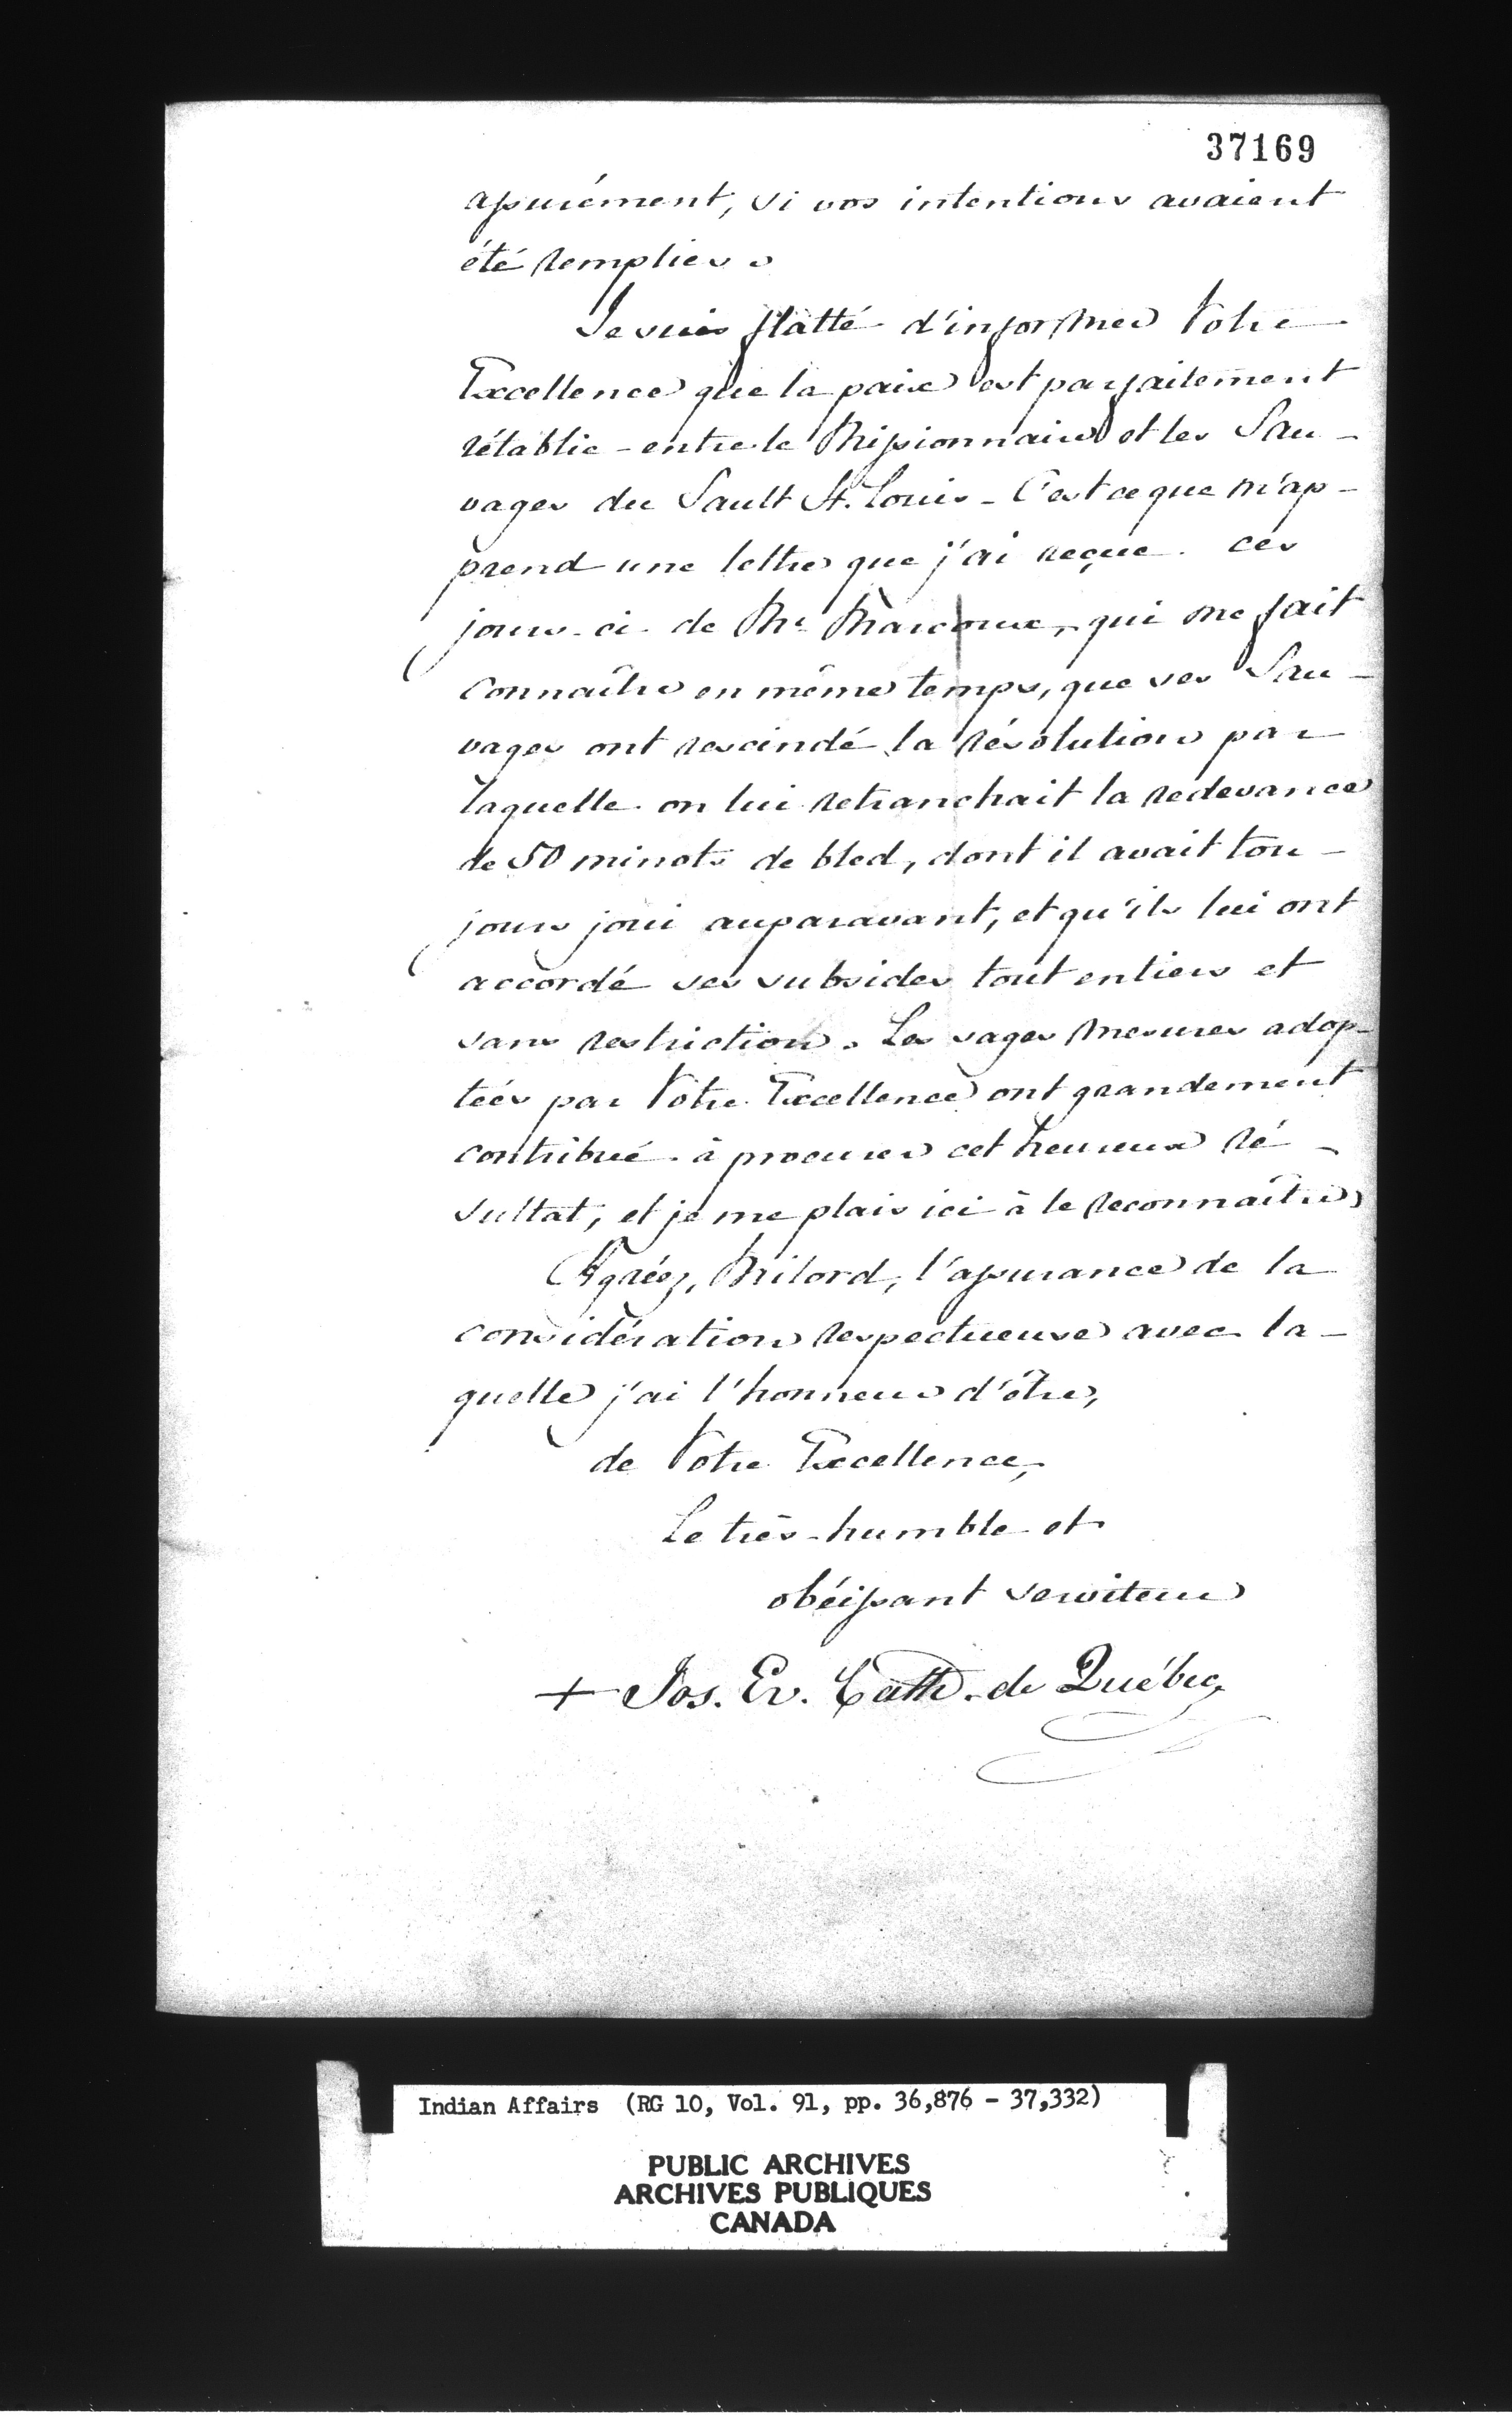 37169
assurément, si vos intentions avaient
été remplies.
Je suis flatté d'informer Votre
Excellence que la paix est parfaitement
rétablie entre le Missionnaire et les Sau-
vages du Sault St. Louis - C'est ce que m'ap-
prend une lettre que j'ai reçue ces
jours-ci de Mr. Marcoux, qui me fait
connaître en même temps, que ses Sau-
vages ont rescindé la résolution par
laquelle on lui retranchait la redevance
de 50 minots de bled, dont il avait tou-
jours joui auparavant, et qu'ils lui ont
accordé ses subsides tout entiers et
sans restriction. Les sages mesures adop-
tées par Votre Excellence ont grandement
contribué à procurer cet heureux ré-
sultat, et je me plais ici à le reconnaître,
Agréez, Milord, l'assurance de la
considération respectueuse avec la-
quelle j'ai l'honneur d'être,
de Votre Excellence,
Le très-humble et
obéissant serviteur
+ Jos. Ev. Cath. de Québec
Indian Affairs (RG 10, Vol. 91, pp. 36,876 - 37,332)
PUBLIC ARCHIVES
ARCHIVES PUBLIQUES
CANADA